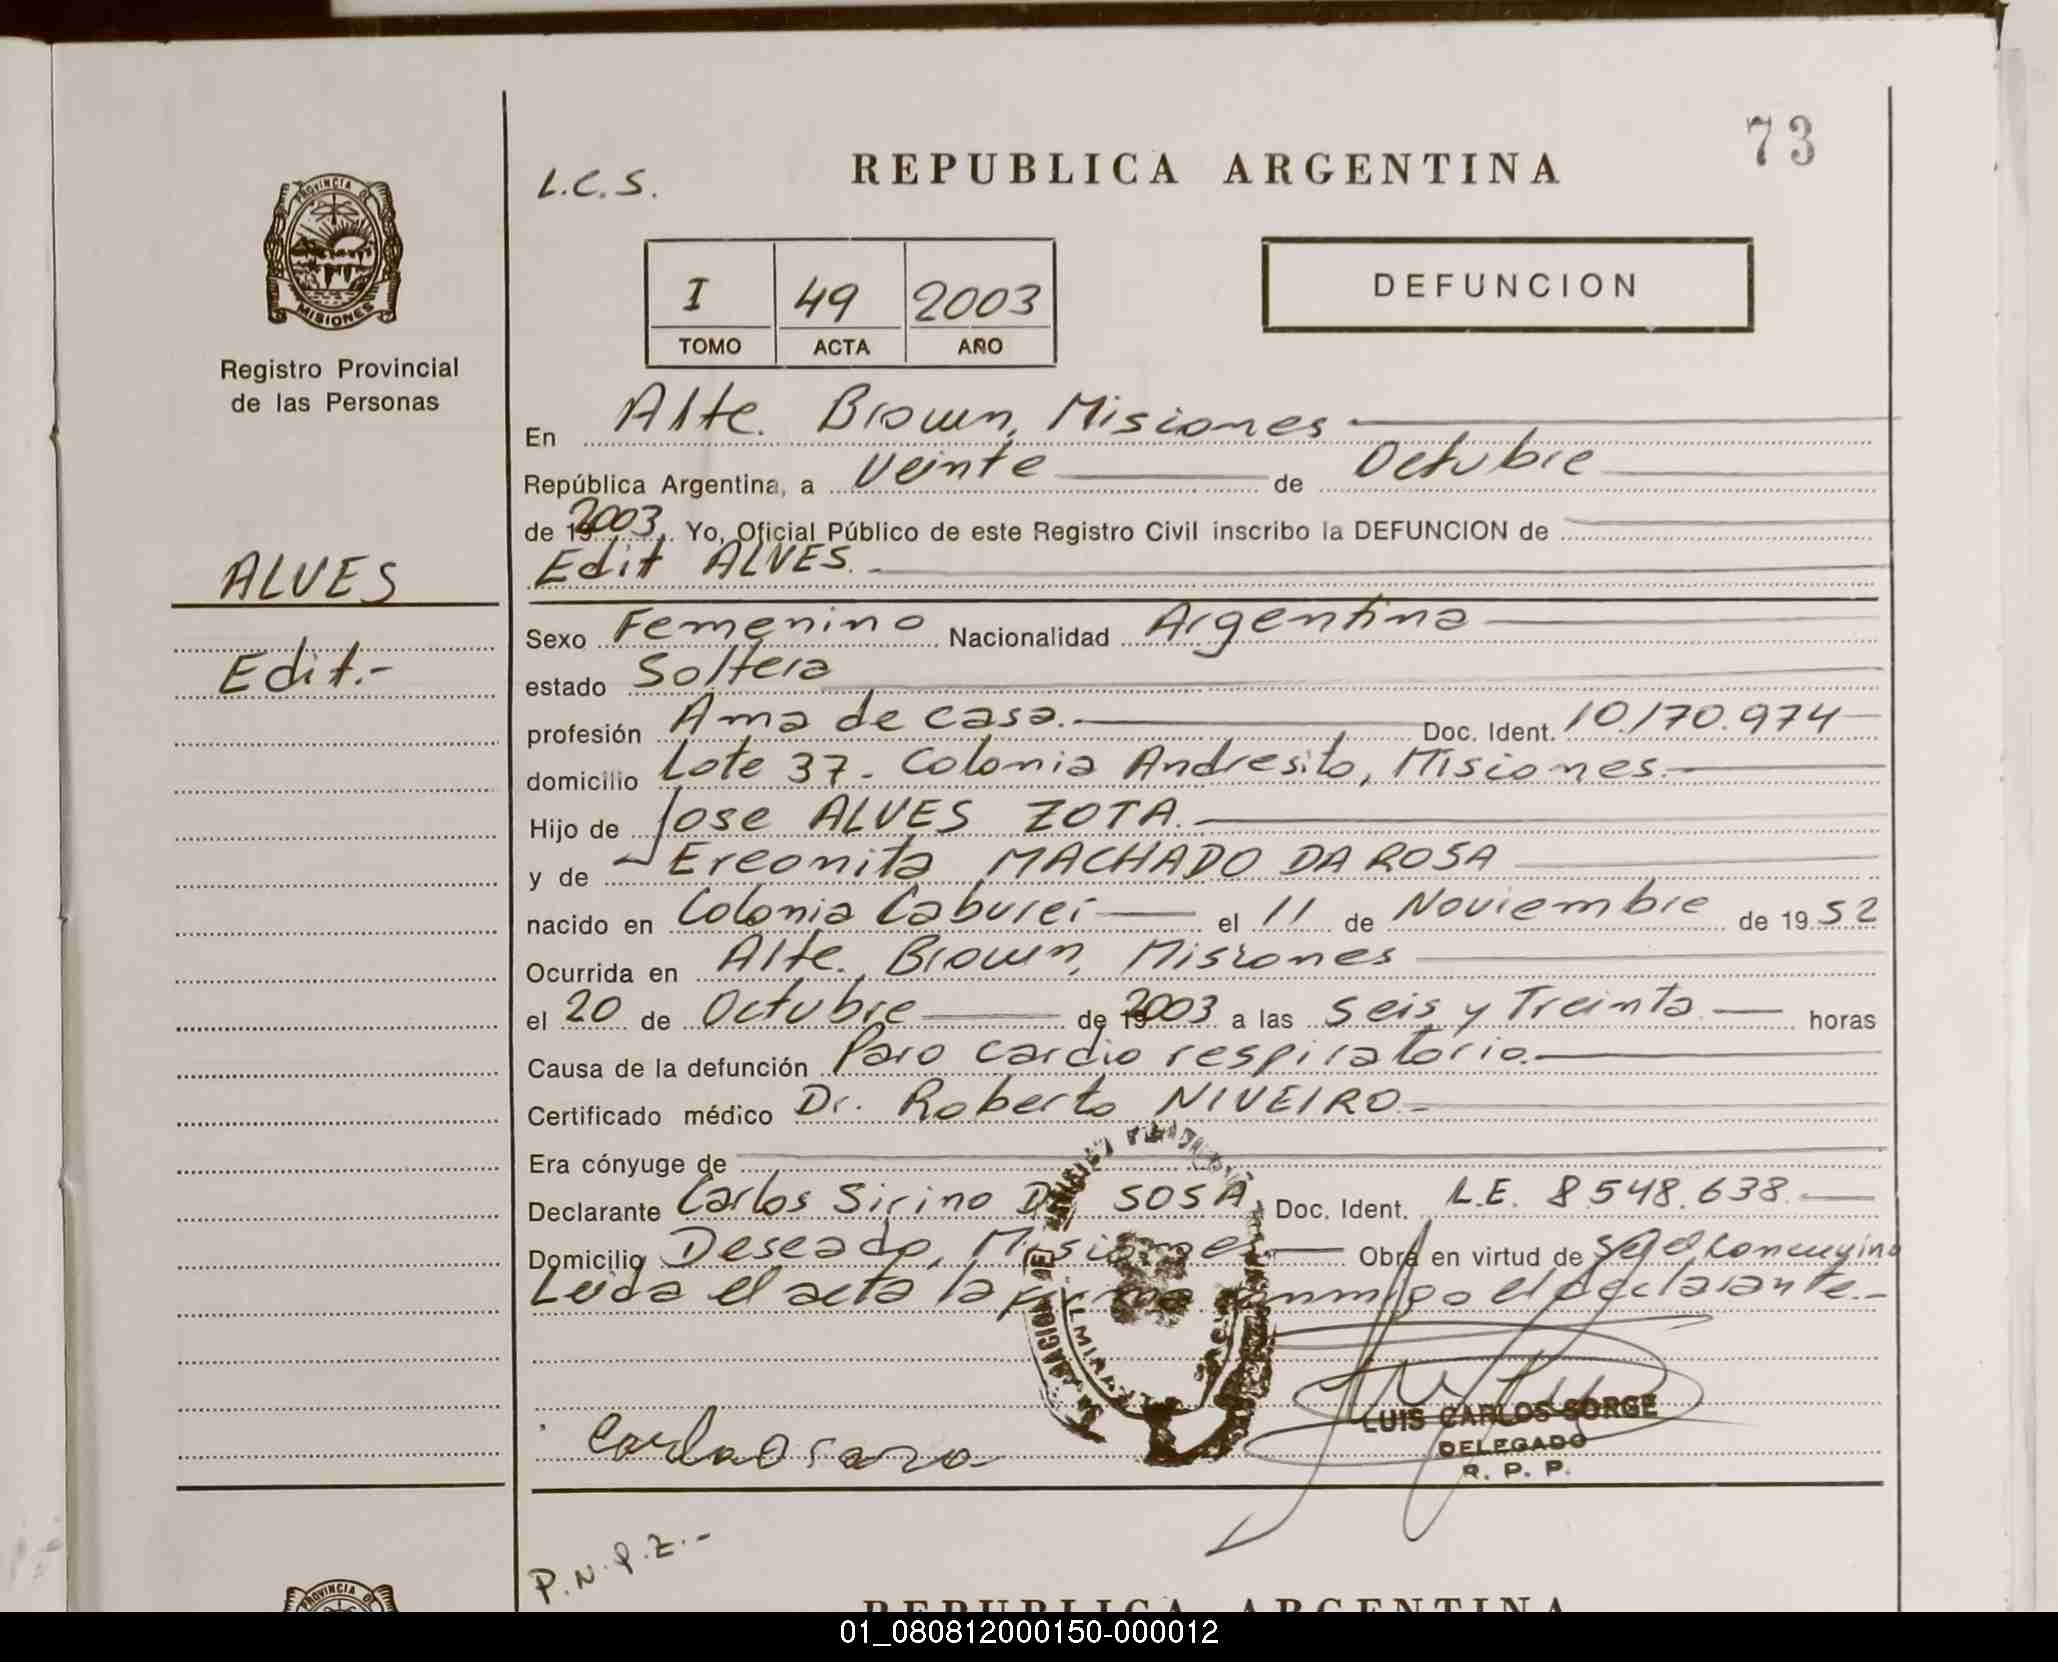 73
L.C.S.
REPUBLICA ARGENTINA
PROVINCIA DE
MISIONES
Registro Provincial
de las Personas
I 49 2003
TOMO ACTA AÑO
DEFUNCION
En Alte. Brown, Misiones
República Argentina, a Veinte de Octubre
de 19 2003. Yo, Oficial Público de este Registro Civil inscribo la DEFUNCION de
ALVES
Edit ALVES.
Edit.-
Sexo Femenino Nacionalidad Argentina
estado Soltera
profesión Ama de casa. Doc. Ident. 10.170.974
domicilio Lote 37- Colonia Andresito, Misiones.
Hijo de Jose ALVES ZOTA.
y de Ereonita MACHADO DA ROSA
nacido en Colonia Caburei el 11 de Noviembre de 19 52
Ocurrida en Alte. Brown, Misiones
el 20 de Octubre de 19 2003 a las seis y Treinta horas
Causa de la defunción Paro cardio respiratorio.
Certificado médico Dr. Roberto NIVEIRO-
Era cónyuge de
Declarante Carlos Sirino DA SOSA Doc. Ident. L.E. 8.548.638.
Domicilio Deseado, Misiones Obra en virtud de ser el Concuvino
Leida el acta la firma conmigo el declarante.-
LUIS CARLOS SORGE
DELEGADO
R. P. P.
P.N.P.Z.-
PROVINCIA DE
REPUBLICA ARGENTINA
01_080812000150-000012